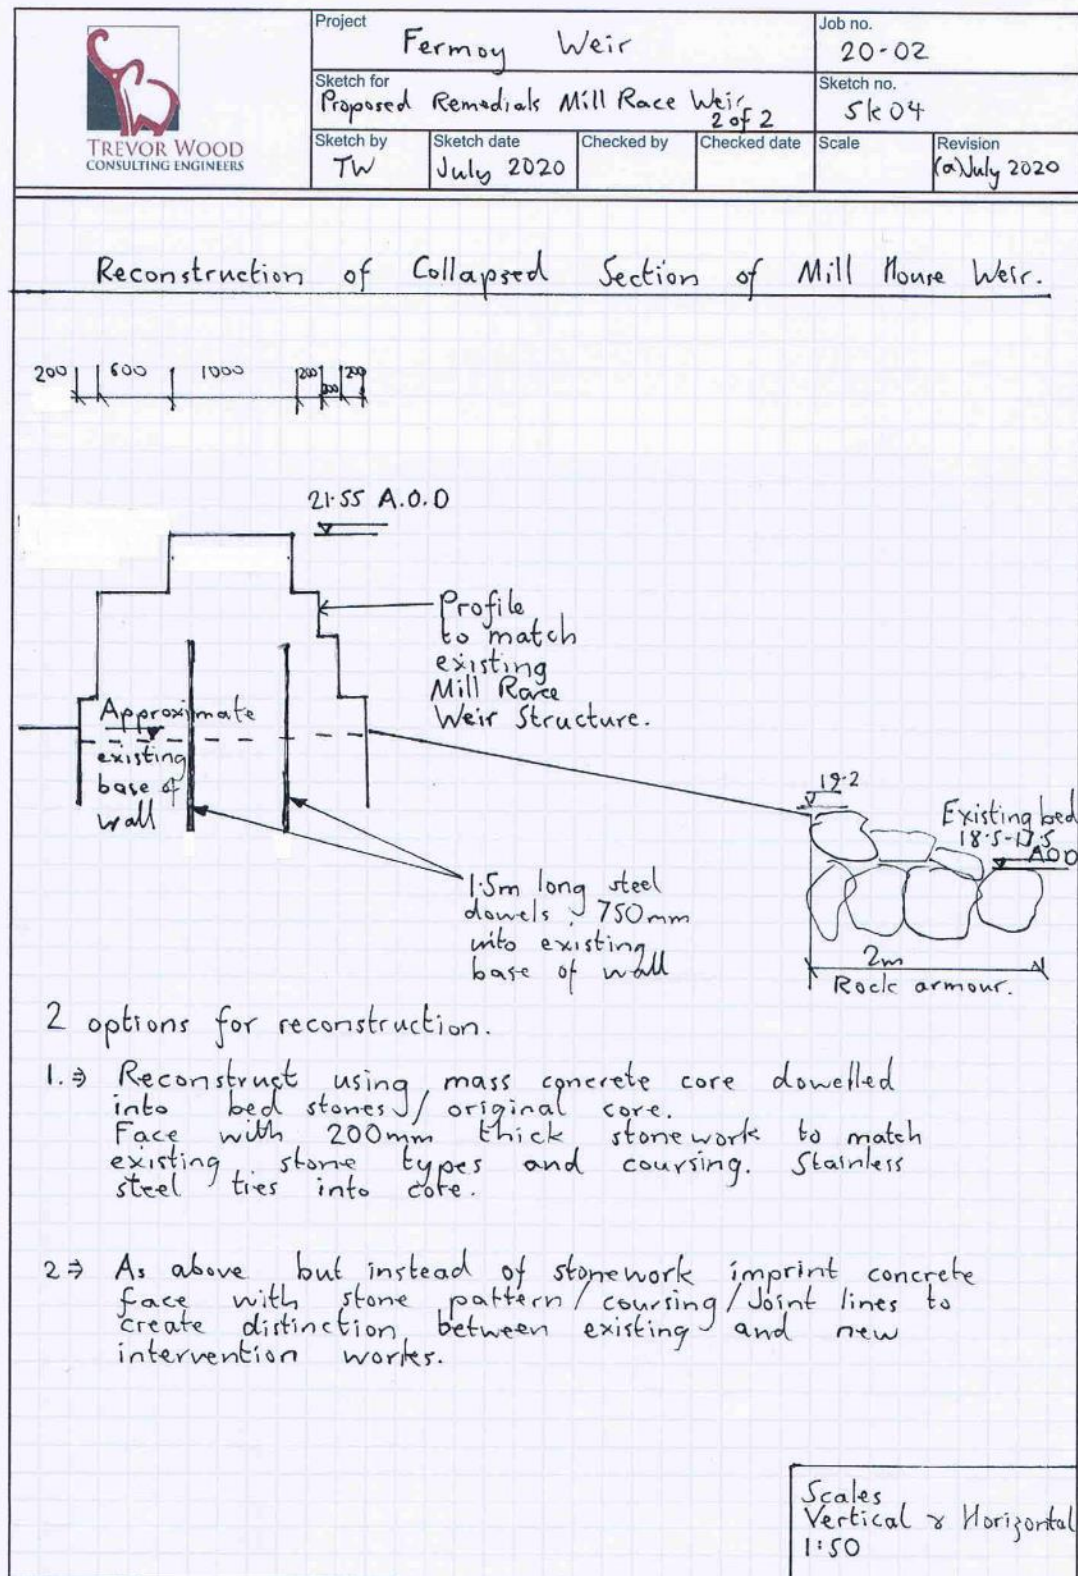 TREVOR WOOD
CONSULTING ENGINEERS
Project
Fermoy Weir
Job no.
20-02
Sketch for
Proposed Remedials Mill Race Weir
2 of 2
Sketch no.
Sk04
Sketch by
TW
Sketch date
July 2020
Checked by
Checked date
Scale
Revision
(a) July 2020
Reconstruction of Collapsed Section of Mill House Weir.
200 600 1000 200 200 200
21.55 A.O.D
Profile
to match
existing
Mill Race
Weir Structure.
Approximate
existing
base of
wall
19.2
Existing bed
18.5-17.5
AOD
1.5m long steel
dowels, 750mm
into existing
base of wall
2m
Rock armour.
2 options for reconstruction.
1.⇒ Reconstruct using mass concrete core dowelled
into bed stones / original core.
Face with 200mm thick stonework to match
existing stone types and coursing. Stainless
steel ties into core.
2⇒ As above but instead of stonework imprint concrete
face with stone pattern/coursing/Joint lines to
create distinction between existing and new
intervention works.
Scales
Vertical & Horizontal
1:50